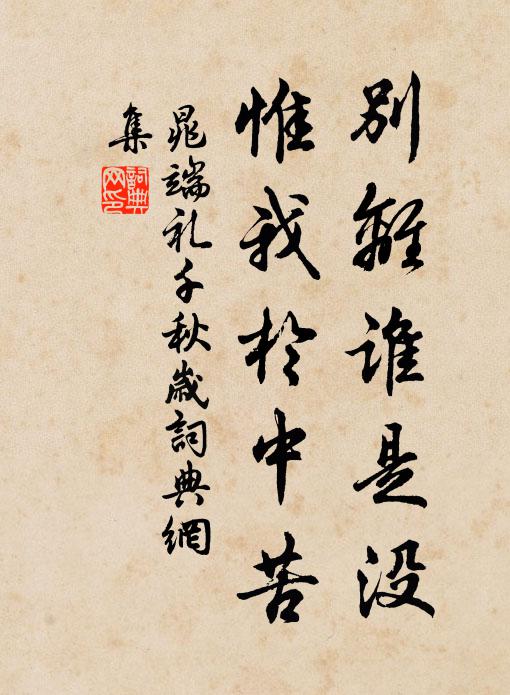 別離誰是没
惟我於中苦
晁端礼千秋歲詞典網
集
詞典網印